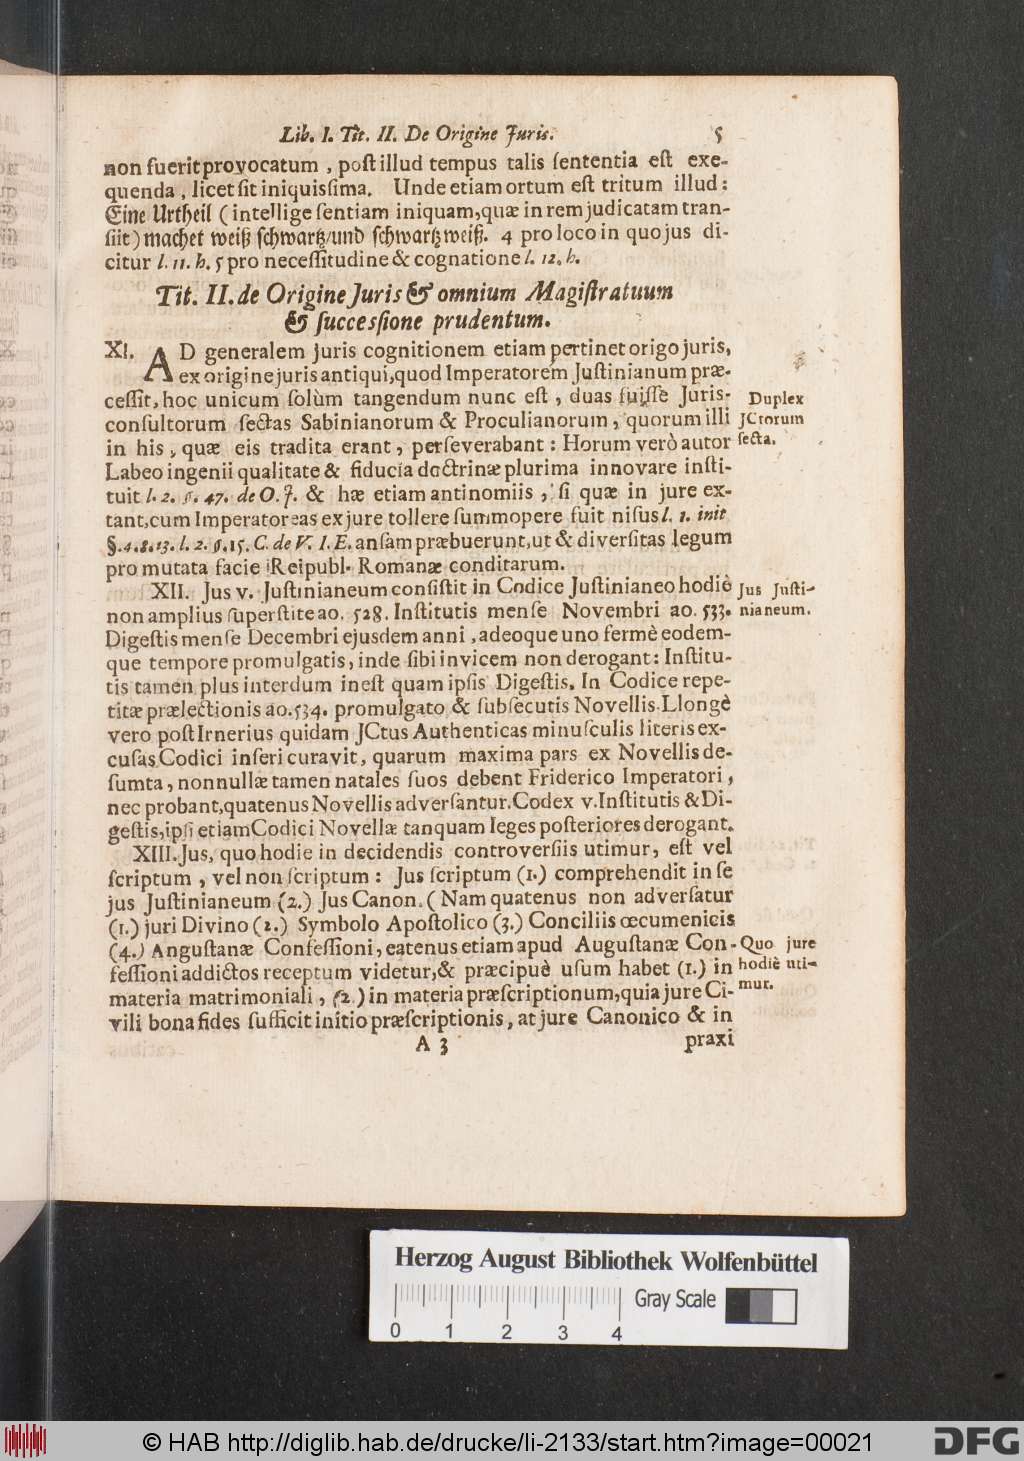 Lib. I. Tit. II. De Origine Juris. 5
non fuerit provocatum, poſt illud tempus talis ſententia eſt exe-
quenda, licet ſit iniquisſima. Unde etiam ortum eſt tritum illud:
Eine Urtheil (intellige ſentiam iniquam, quæ in rem judicatam tran-
ſiit) machet weiß ſchwartz/und ſchwartz weiß. 4 pro loco in quo jus di-
citur l. 11. h. 5 pro neceſſitudine & cognatione l. 12. h.
Tit. II. de Origine Juris & omnium Magiſtratuum
& ſucceſſione prudentum.
XI. AD generalem juris cognitionem etiam pertinet origo juris,
ex origine juris antiqui, quod Imperatorem Juſtinianum præ-
ceſſit, hoc unicum ſolùm tangendum nunc eſt, duas fuiſſe Juris-
conſultorum ſectas Sabinianorum & Proculianorum, quorum illi
in his, quæ eis tradita erant, perſeverabant: Horum verò autor
Labeo ingenii qualitate & fiducia doctrinæ plurima innovare inſti-
tuit l. 2. §. 47. de O. J. & hæ etiam antinomiis, ſi quæ in jure ex-
tant, cum Imperator eas ex jure tollere ſummopere fuit niſus l. 1. init
§. 4. 8. 13. l. 2. §. 15. C. de V. I. E. anſam præbuerunt, ut & diverſitas legum
pro mutata facie Reipubl. Romanæ conditarum.
XII. Jus v. Juſtinianeum conſiſtit in Codice Juſtinianeo hodiè
non amplius ſuperſtite ao. 528. Inſtitutis menſe Novembri ao. 533.
Digeſtis menſe Decembri ejusdem anni, adeoque uno fermè eodem-
que tempore promulgatis, inde ſibi invicem non derogant: Inſtitu-
tis tamen plus interdum ineſt quam ipſis Digeſtis. In Codice repe-
titæ prælectionis ao. 534. promulgato & ſubſecutis Novellis. Llongè
vero poſt Irnerius quidam JCtus Authenticas minuſculis literis ex-
cuſas Codici inſeri curavit, quarum maxima pars ex Novellis de-
ſumta, nonnullæ tamen natales ſuos debent Friderico Imperatori,
nec probant, quatenus Novellis adverſantur. Codex v. Inſtitutis & Di-
geſtis, ipſi etiam Codici Novellæ tanquam leges poſteriores derogant.
XIII. Jus, quo hodie in decidendis controverſiis utimur, eſt vel
ſcriptum, vel non ſcriptum: Jus ſcriptum (1.) comprehendit in ſe
jus Juſtinianeum (2.) Jus Canon. (Nam quatenus non adverſatur
(1.) juri Divino (2.) Symbolo Apoſtolico (3.) Conciliis œcumenicis
(4.) Anguſtanæ Confeſſioni, eatenus etiam apud Auguſtanæ Con-
feſſioni addictos receptum videtur, & præcipuè uſum habet (1.) in
materia matrimoniali, (2.) in materia præſcriptionum, quia jure Ci-
vili bona fides ſufficit initio præſcriptionis, at jure Canonico & in
A 3 praxi
Duplex
JCtorum
ſecta.
Jus Juſti-
nianeum.
Quo jure
hodiè uti-
mur.
Herzog August Bibliothek Wolfenbüttel
Gray Scale
0 1 2 3 4
© HAB http://diglib.hab.de/drucke/li-2133/start.htm?image=00021
DFG